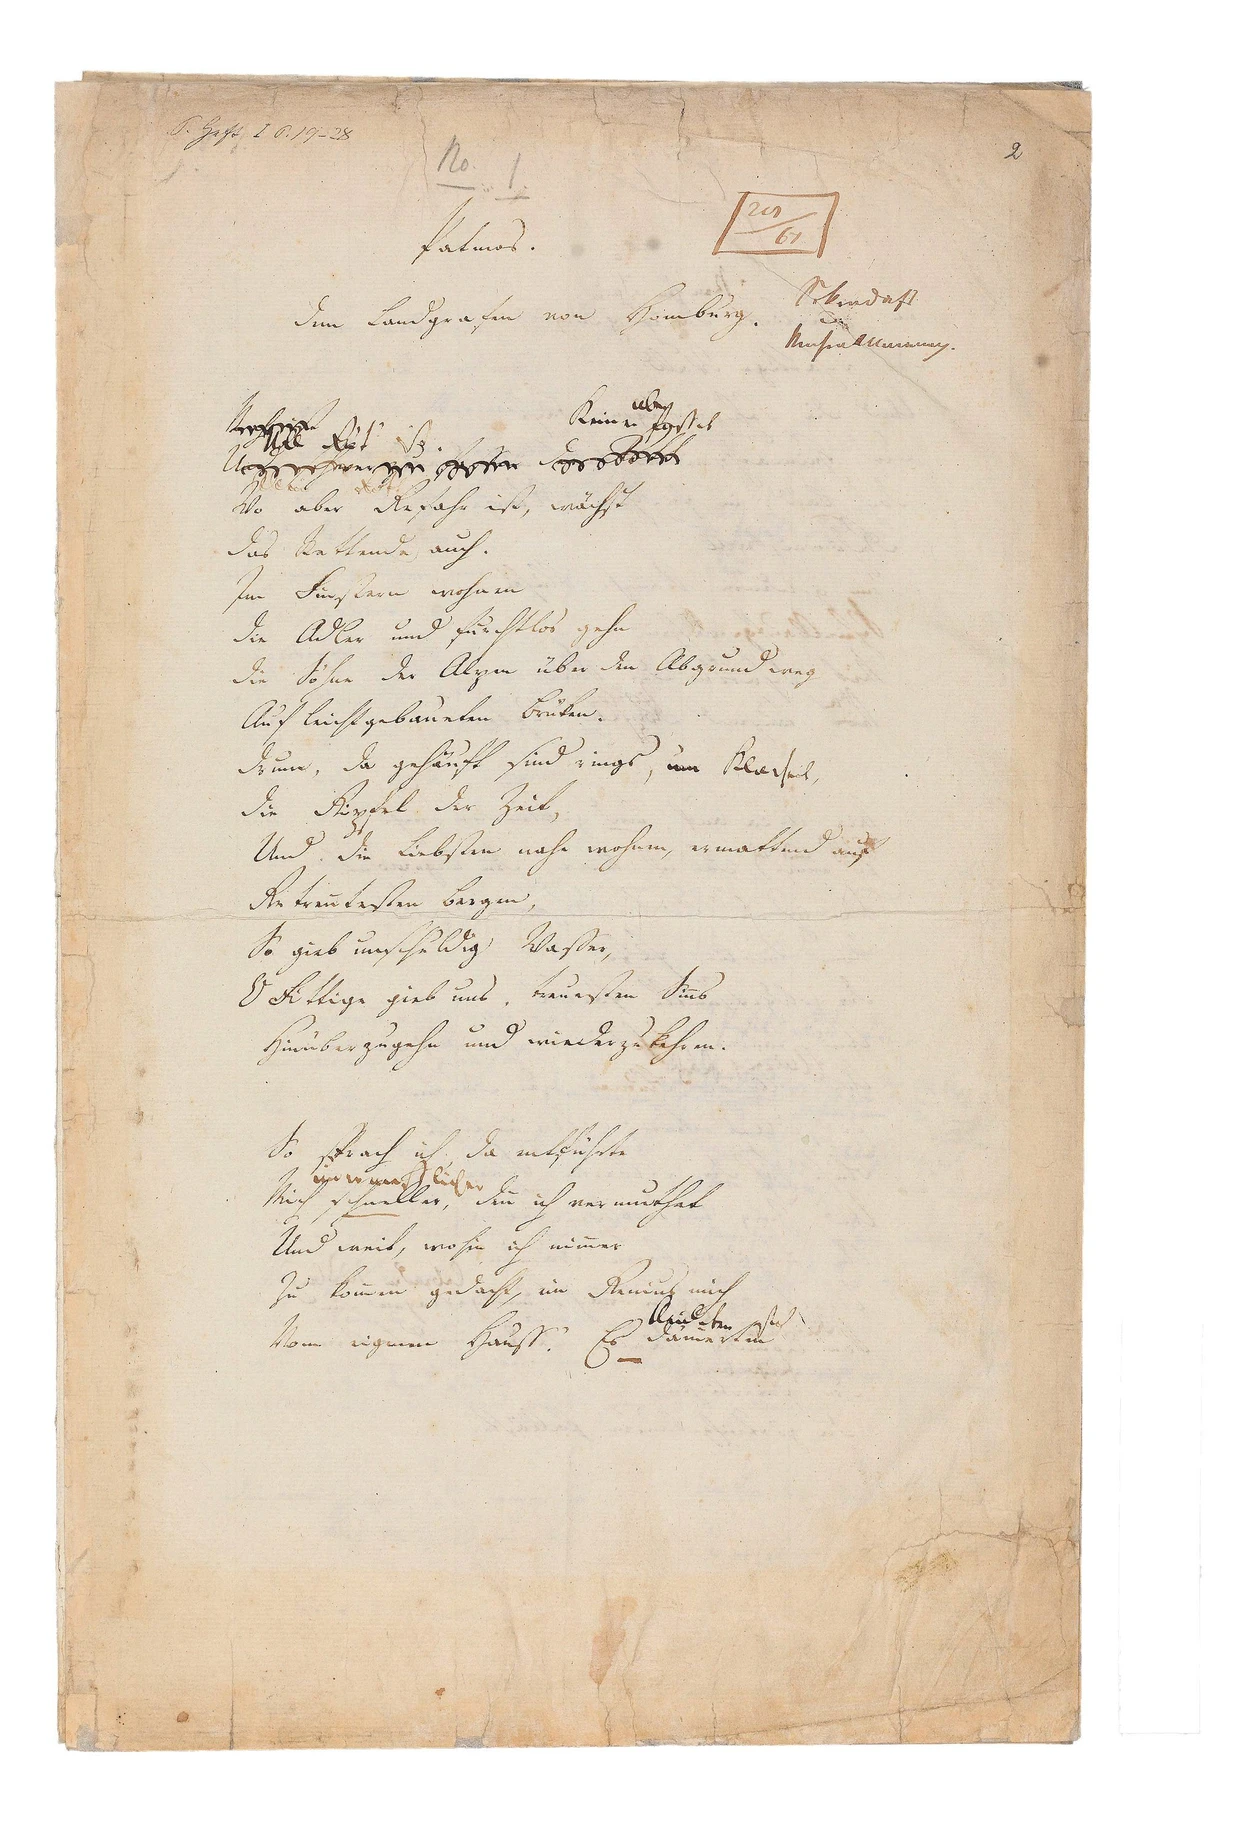 S. Heft I S. 19-28
2
No. 1
Patmos.
Dem Landgrafen von Homburg.
Voll Güt' ist. Keiner aber fasset
Wo aber Gefahr ist, wächst
Das Rettende auch.
Im Finstern wohnen
Die Adler und furchtlos gehn
Die Söhne der Alpen über den Abgrund weg
Auf leichtgebaueten Brüken.
Drum, da gehäuft sind rings, um Klarheit,
Die Gipfel der Zeit,
Und die Liebsten nahe wohnen, ermattend auf
Getrenntesten Bergen,
So gieb unschuldig Wasser,
O Fittige gieb uns, treuesten Sinns
Hinüberzugehn und wiederzukehren.
So sprach ich, da entführte
Mich schneller, denn ich vermuthet
Und weit, wohin ich nimmer
Zu kommen gedacht, ein Genius mich
Vom eignen Hauß'. Es dämmerten